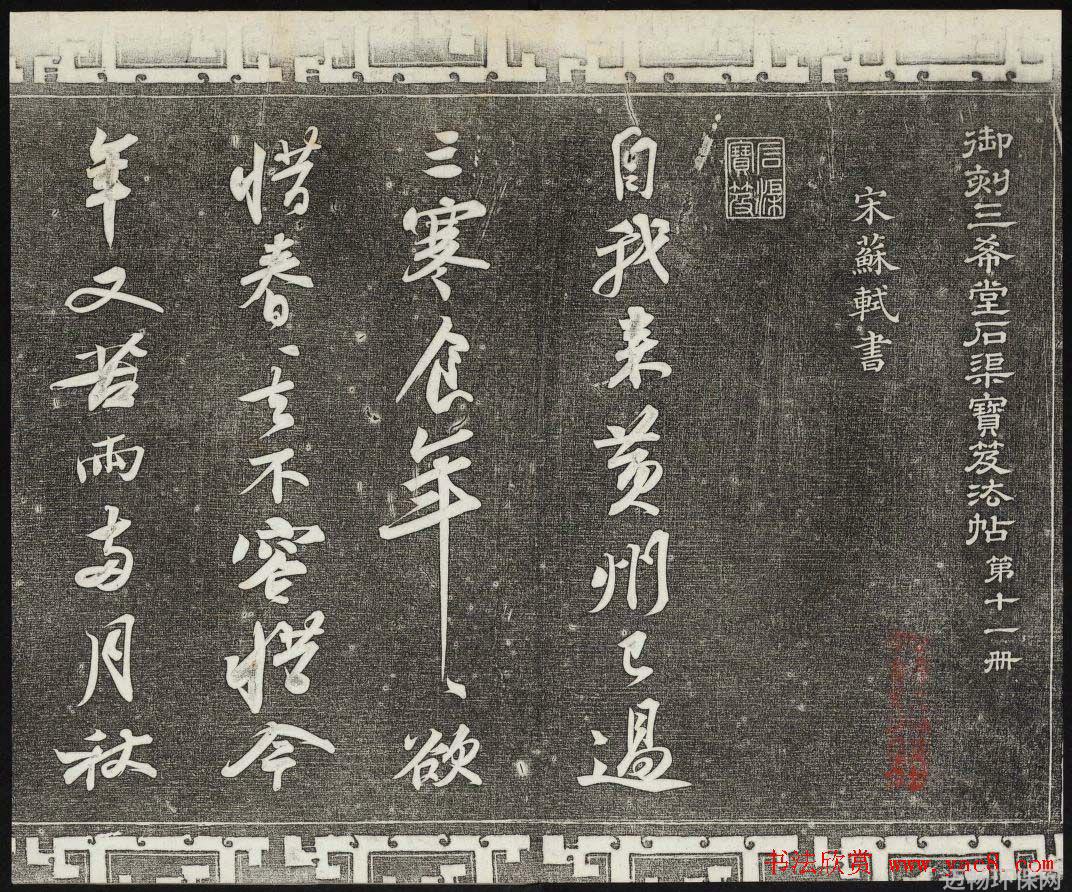 御刻三希堂石渠寶笈法帖 第十一冊
宋蘇軾書
石渠寶笈
自我来黄州已過
三寒食年、欲
惜春、去不容惜今
年又苦雨两月秋
书法欣赏 www.yac8.com